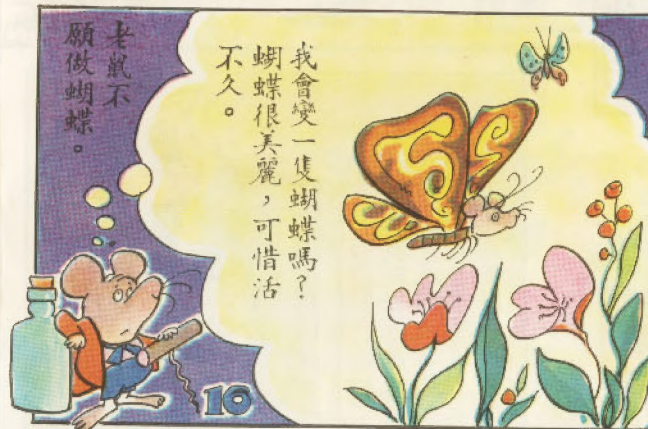 我會變一隻蝴蝶嗎？
蝴蝶很美麗，可惜活
不久。
老鼠不
願做蝴蝶。
10